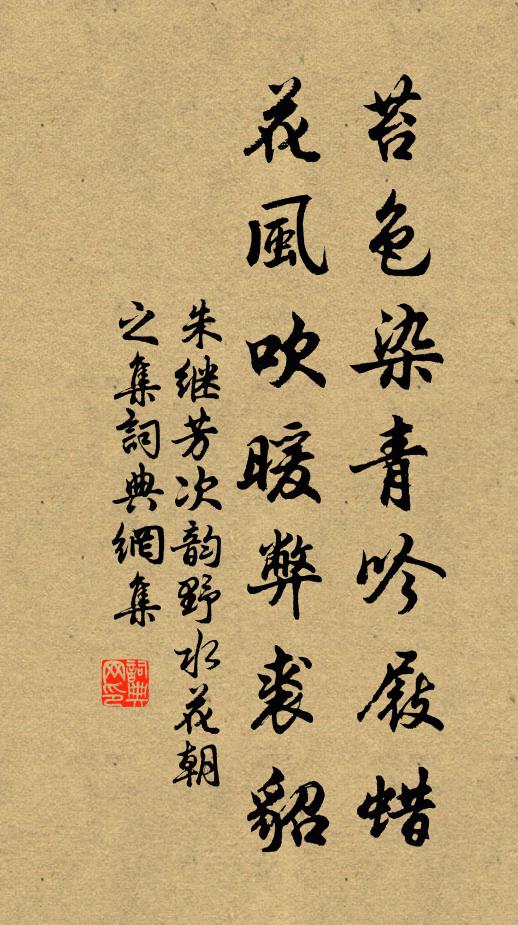 苔色染青吟屐蜡
花風吹暖弊裘貂
朱继芳次韵野水花朝
之集詞典網集
詞典
网印